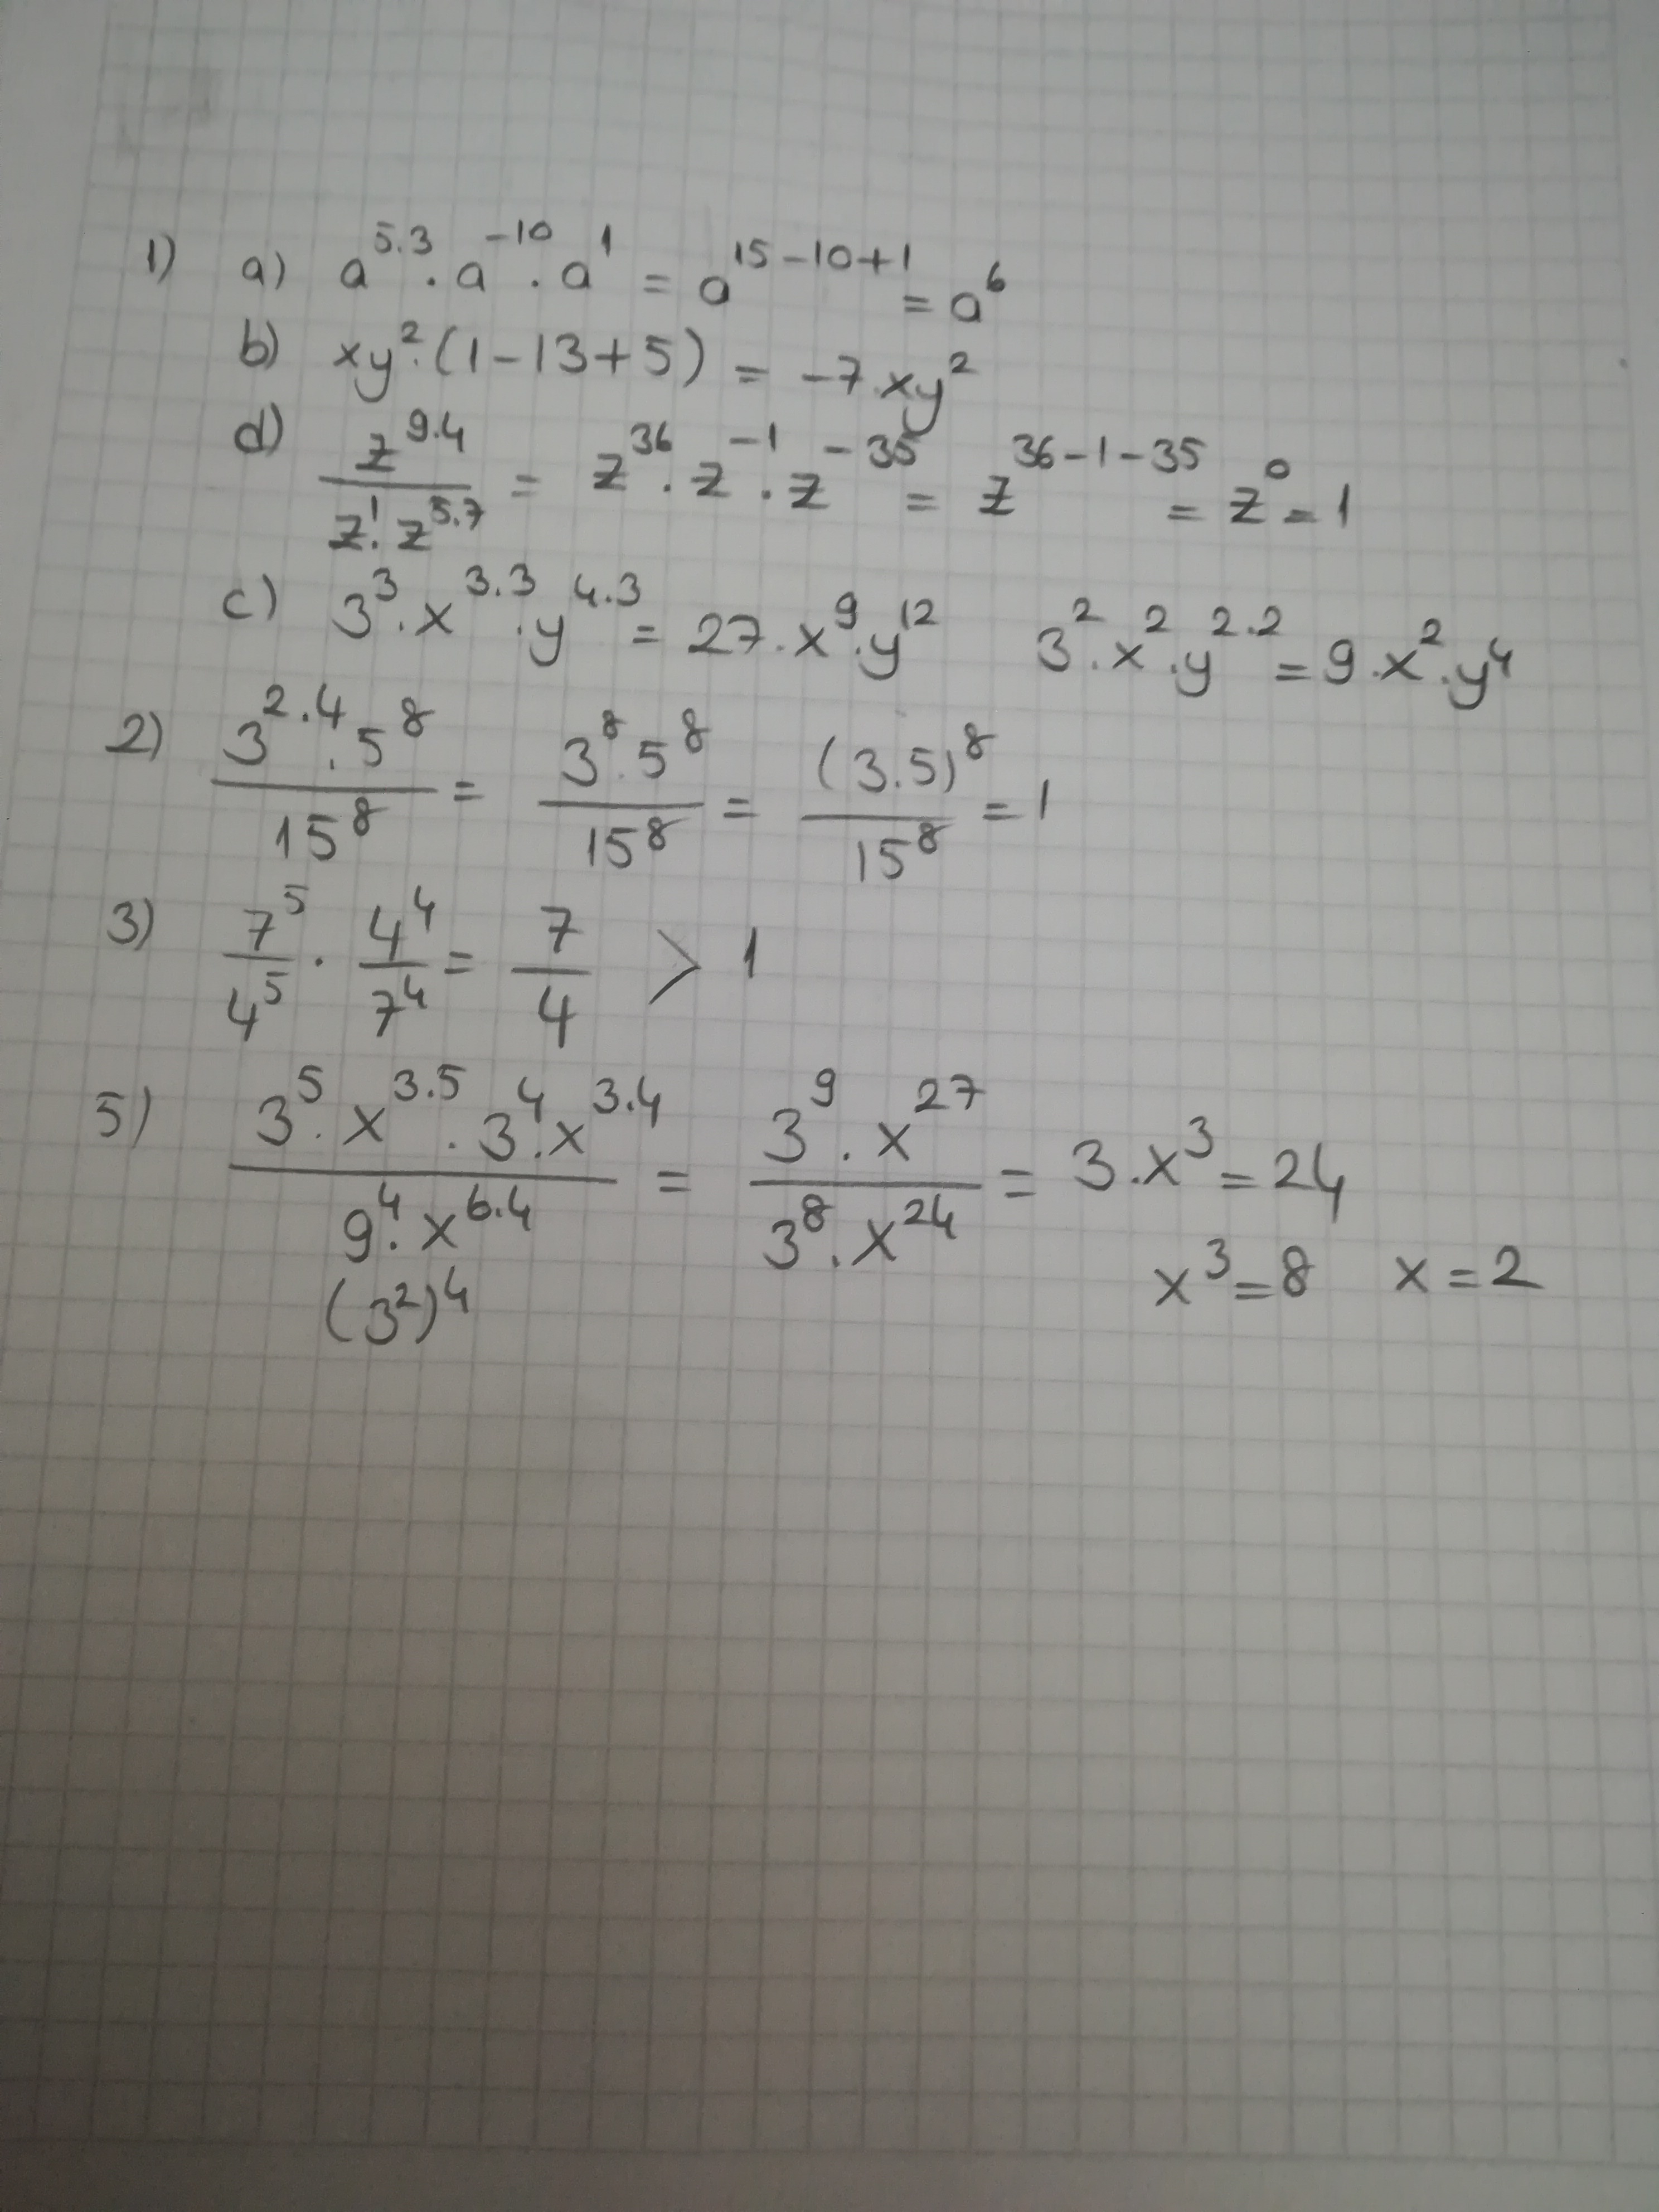 1) a) a^5.3 . a^-10 . a^1 = a^15-10+1 = a^6
b) xy^2.(1-13+5) = -7.xy^2
d) z^9.4 / z^1.z^5.7 = z^36 . z^-1 . z^-35 = z^36-1-35 = z^0 = 1
c) 3^3.x^3.3.y^4.3 = 27.x^9.y^12 3^2.x^2.y^2.2 = 9.x^2.y^4
2) 3^2.4.5^8 / 15^8 = 3^8.5^8 / 15^8 = (3.5)^8 / 15^8 = 1
3) 7^5/4^5 . 4^4/7^4 = 7/4 > 1
5) 3^5.x^3.5.3^4.x^3.4 / 9^4.x^6.4 = 3^9.x^27 / 3^8.x^24 = 3.x^3 = 24
(3^2)^4 x^3 = 8 x = 2